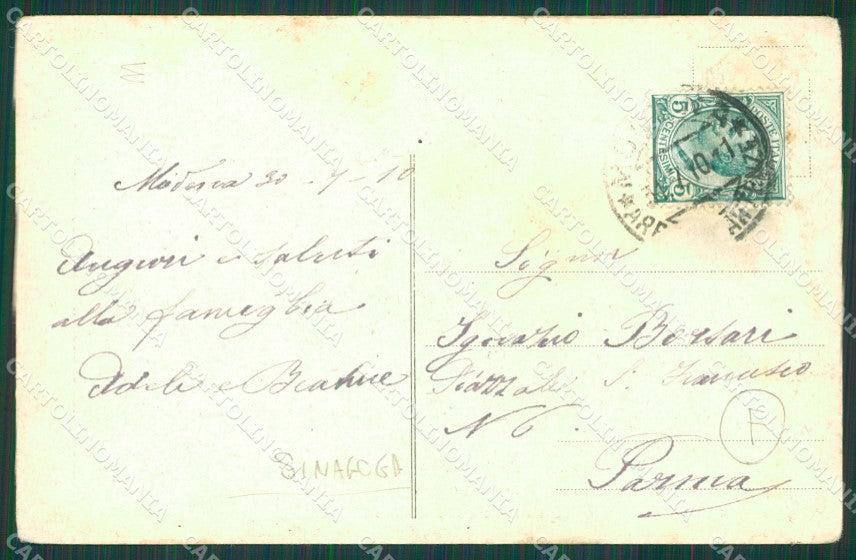 Modena 30-7-10
Auguri e saluti
alla famiglia
Adele e Beatrice
SINAGOGA
Signor
Ignazio Bassani
Piazzale S. Francesco
N 6.
Parma
F
POSTE ITALIANE
5 CENTESIMI 5
CARTOLINOMANIA